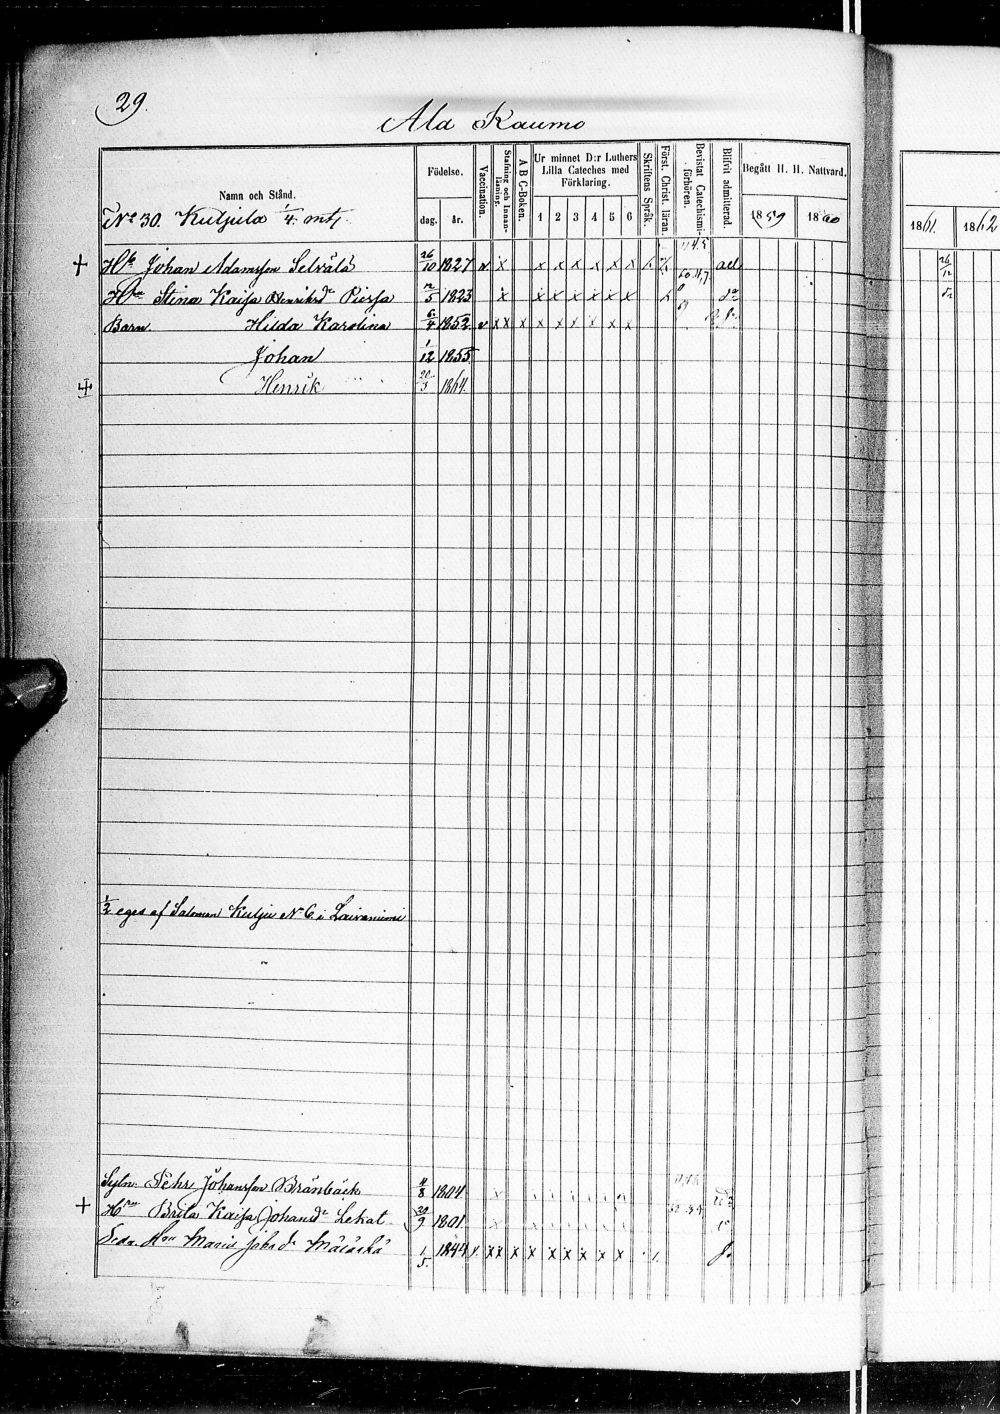 29.
Ala Raumo
Namn och Stånd.
Födelse.
dag. år.
Vaccination.
Stafning och Innanläsning.
A B C-Boken.
Ur minnet D:r Luthers Lilla Cateches med Förklaring.
1 2 3 4 5 6
Skriftens Språk.
Först. Christ. läran.
Bevistat Catechismiförhören.
Blifvit admitterad.
Begått H. H. Nattvard.
1859 1860 1861. 1862
No 30. Kuljula 1/4 mtl.
+ Johan Adamsson Selvälä 26/10 1827 v. x x x x x x x ad
Stina Kaisa Henriksdr Piessa 2/5 1823 x x x x x x x do
Barn. Hilda Karolina 6/4 1852 v x x x x x x x x x
Johan 1/12 1855
Henrik 20/3 1864.
1/2 eges af Salomon Kulju N 6 i Laivaniemi
Sytn. Pehr Johansson Brännback 4/8 1804 x
+ Hon Brita Kaisa Johansdr Lekat 20/9 1801 x
Maria Johsdr Määttä 1/5 1844 x x x x x x x x x